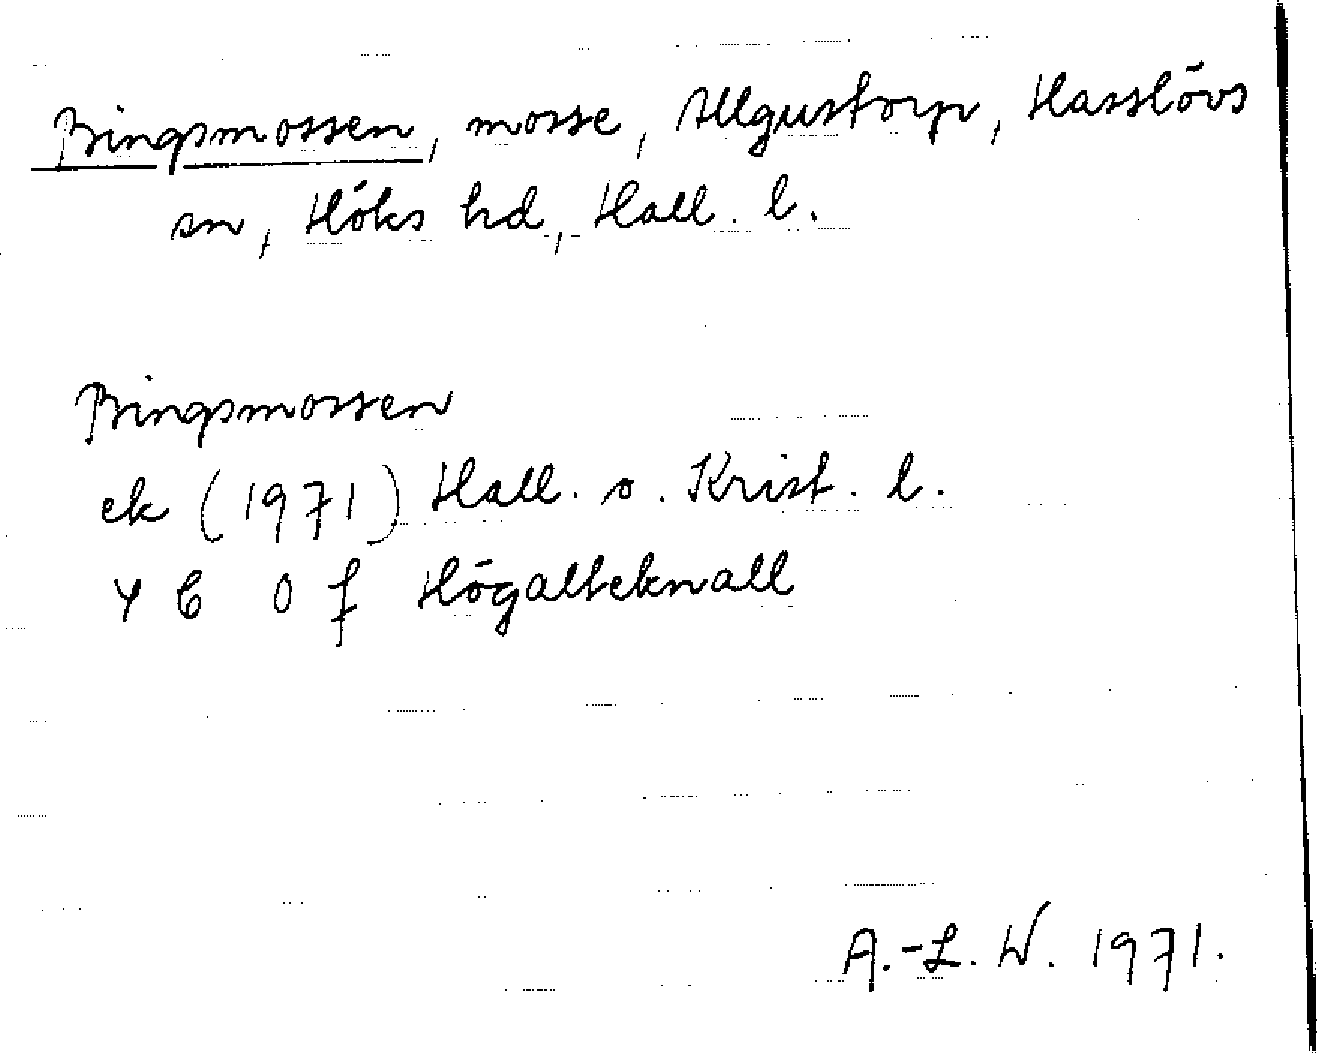 Bingsmossen, mosse, Allgustorp, Hasslövs
sn, Höks hd, Hall. l.
Bingsmossen
ek (1971) Hall. o. Krist. l.
4 C 0 f Högalteknall
A.-L. W. 1971.